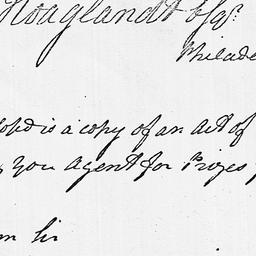 Hoaglandt Esqr.
Philade
is a copy of an Act of
you Agent for Prizes
Sir